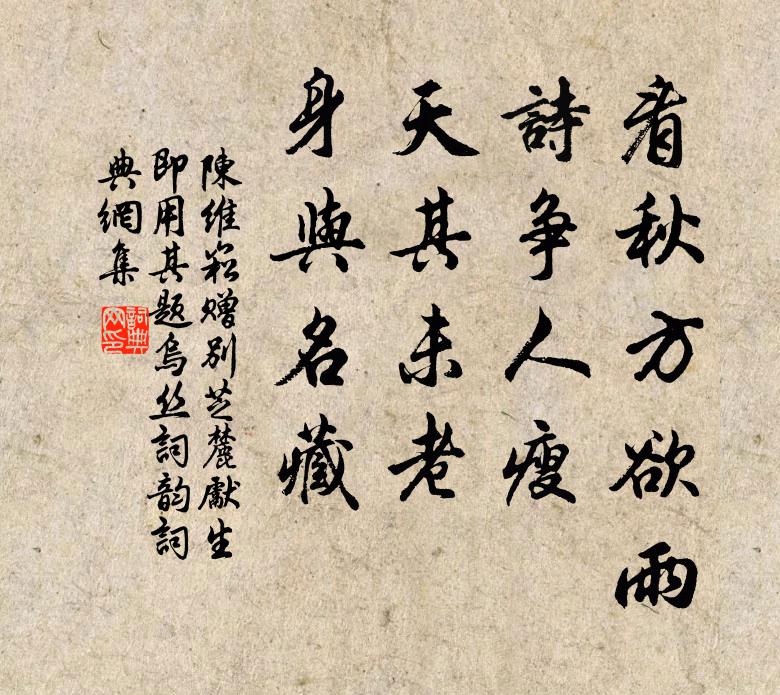 看秋方欲雨
詩争人瘦
天其未老
身與名藏
陳維崧贈别芝麓獻生
即用其题烏丝詞韵詞
典網集
詞典網印